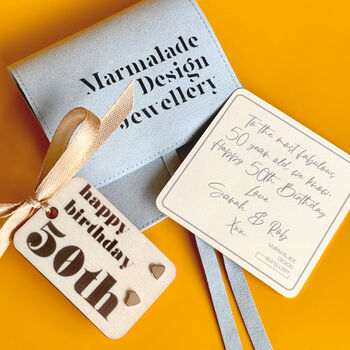 Marmalade
Design
Jewellery
To the most fabulous
50 year old we know.
Happy 50th Birthday
Love
Sarah & Rob
Xxx
MARMALADE
DESIGN
JEWELLERY
happy
birthday
50th